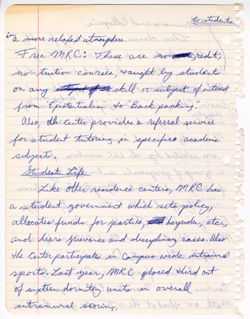 to students
in a more relaxed atmosphere.
Free MRC: These are non-credit,
no tuition courses, taught by student
on any skill or subject of interest
from Existentialism to Back packing.
Also, the center provides a referral service
for student tutoring in specific academic
subject.
Student Life
Like other residence centers, MRC has
a student government which sets policy,
allocates funds for parties, etc,
and hears grievance and disciplinary cases. Also
the Center participates in Campus-wide intramural
sports. Last year, MRC placed third out
of sixteen dormitory units in overall
intramural scoring.